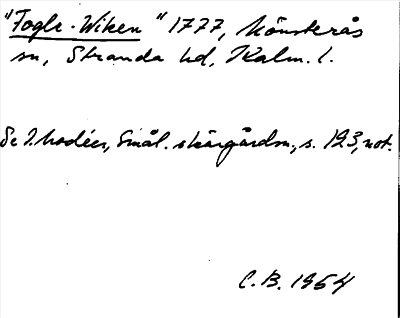 "Fogle-Wiken" 1777, Mönsterås
sn, Stranda hd, Kalm. l.
Se I. Modéer, Smål. skärgårdsn, s. 123, not.
C.B. 1954